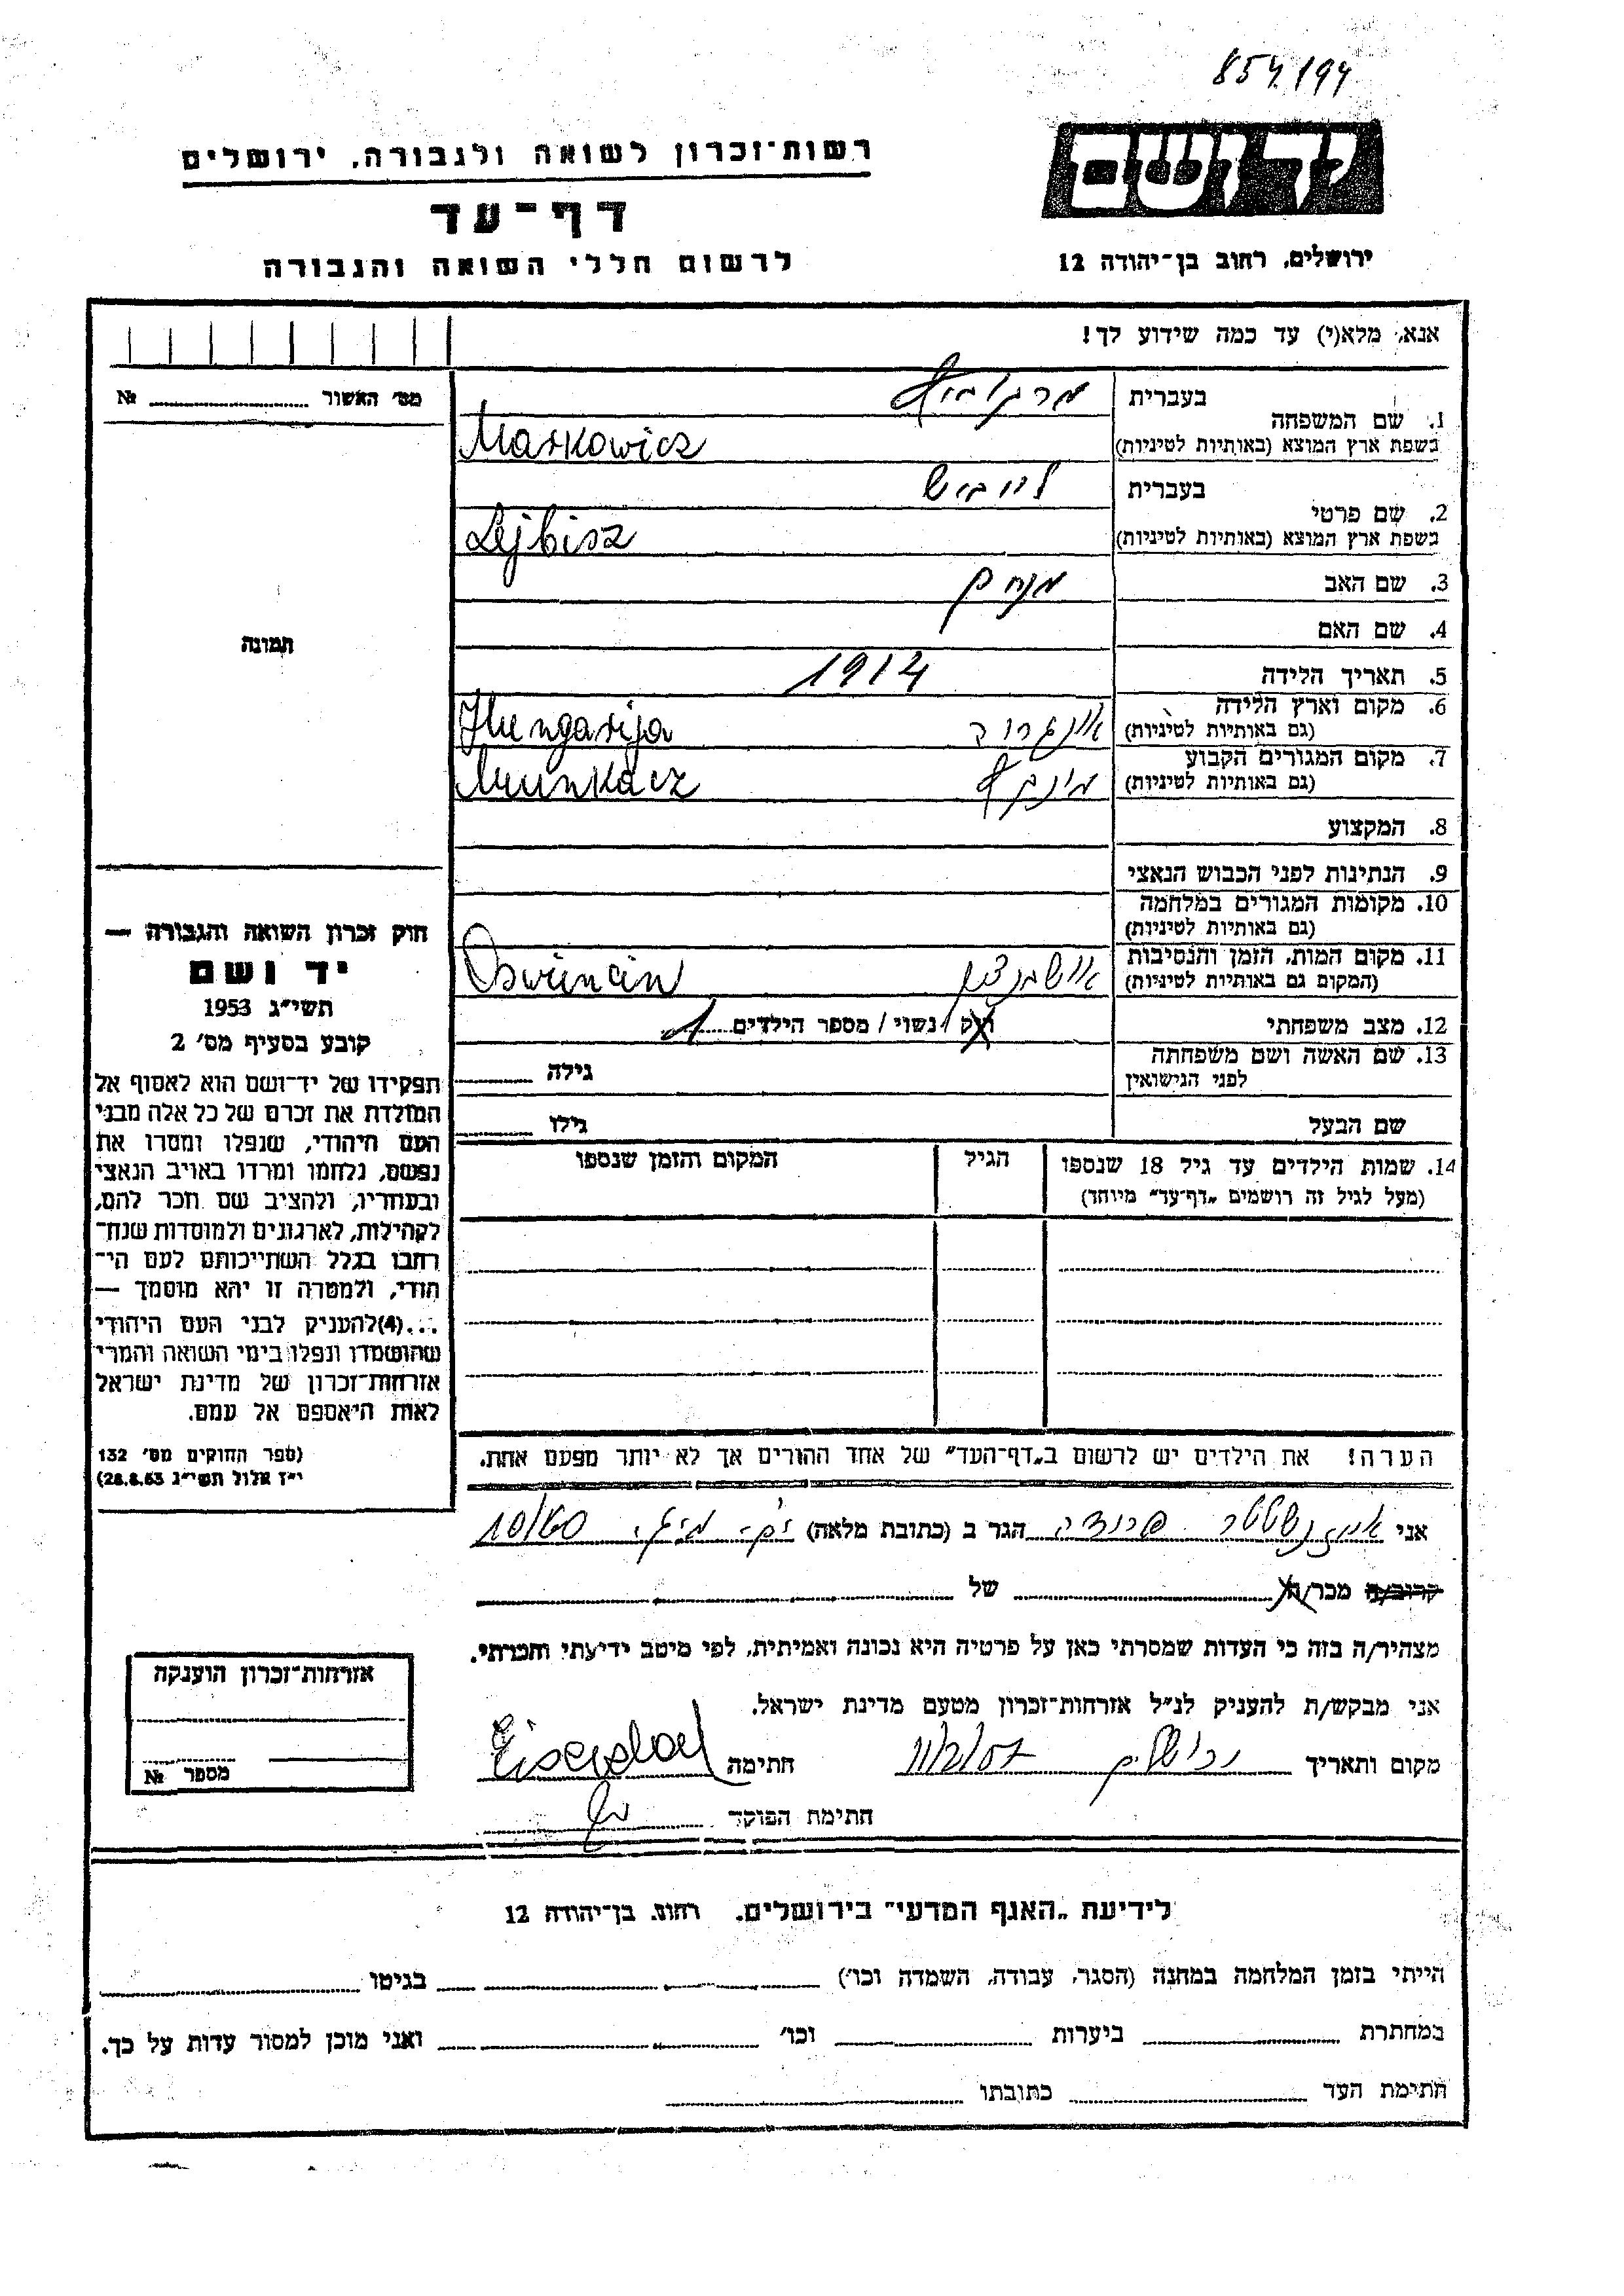 854.194
יד ושם
רשות־זכרון לשואה ולגבורה, ירושלים
דף־עד
לרשום חללי השואה והגבורה
ירושלים, רחוב בן־יהודה 12
אנא, מלא(י) עד כמה שידוע לך!
מס׳ האשור № 
תמונה
1. שם המשפחה
בעברית
מרקוביץ
בשפת ארץ המוצא (באותיות לטיניות)
Markowicz
2. שם פרטי
בעברית
לייביש
בשפת ארץ המוצא (באותיות לטיניות)
Lejbisz
3. שם האב
מנחם
4. שם האם
5. תאריך הלידה
1914
6. מקום וארץ הלידה
(גם באותיות לטיניות)
Hungarija
7. מקום המגורים הקבוע
(גם באותיות לטיניות)
Munkacz
8. המקצוע
9. הנתינות לפני הכבוש הנאצי
10. מקומות המגורים במלחמה
(גם באותיות לטיניות)
11. מקום המות, הזמן והנסיבות
(המקום גם באותיות לטיניות)
Oswincin
12. מצב משפחתי
רוק / נשוי / מספר הילדים 1
13. שם האשה ושם משפחתה
לפני הנישואין
גילה
שם הבעל
גילו
14. שמות הילדים עד גיל 18 שנספו
(מעל לגיל זה רושמים „דף־עד״ מיוחד)
הגיל
המקום והזמן שנספו
חוק זכרון השואה והגבורה —
יד ושם
תשי״ג 1953
קובע בסעיף מס׳ 2
תפקידו של יד־ושם הוא לאסוף אל
המולדת את זכרם של כל אלה מבני
העם היהודי, שנפלו ומסרו את
נפשם, נלחמו ומרדו באויב הנאצי
ובעוזריו, ולהציב שם וזכר להם,
לקהילות, לארגונים ולמוסדות שנח־
רבו בגלל השתייכותם לעם הי־
הודי, ולמטרה זו יהא מוסמך —
...(4) להעניק לבני העם היהודי
שהושמדו ונפלו בימי השואה והמרי
אזרחות־זכרון של מדינת ישראל
לאות היאספם אל עמם.
(ספר החוקים מס׳ 132
י״ז אלול תשי״ג 28.8.53)
הערה! את הילדים יש לרשום ב„דף־העד״ של אחד ההורים אך לא יותר מפעם אחת.
אני אייזנשטטר הגר ב (כתובת מלאה) 10/60
קרוב/ה מכר/ה של
מצהיר/ה בזה כי העדות שמסרתי כאן על פרטיה היא נכונה ואמיתית, לפי מיטב ידיעתי והכרתי.
אני מבקש/ת להעניק לנ״ל אזרחות־זכרון מטעם מדינת ישראל.
מקום ותאריך ירושלים 11/2/57 חתימה
חתימת הפוקד
אזרחות־זכרון הוענקה
מספר №
לידיעת „האגף המדעי״ בירושלים, רחוב בן־יהודה 12
הייתי בזמן המלחמה במחנה (הסגר, עבודה, השמדה וכו׳) בגיטו
במחתרת ביערות וכו׳ ואני מוכן למסור עדות על כך.
חתימת העד כתובתו